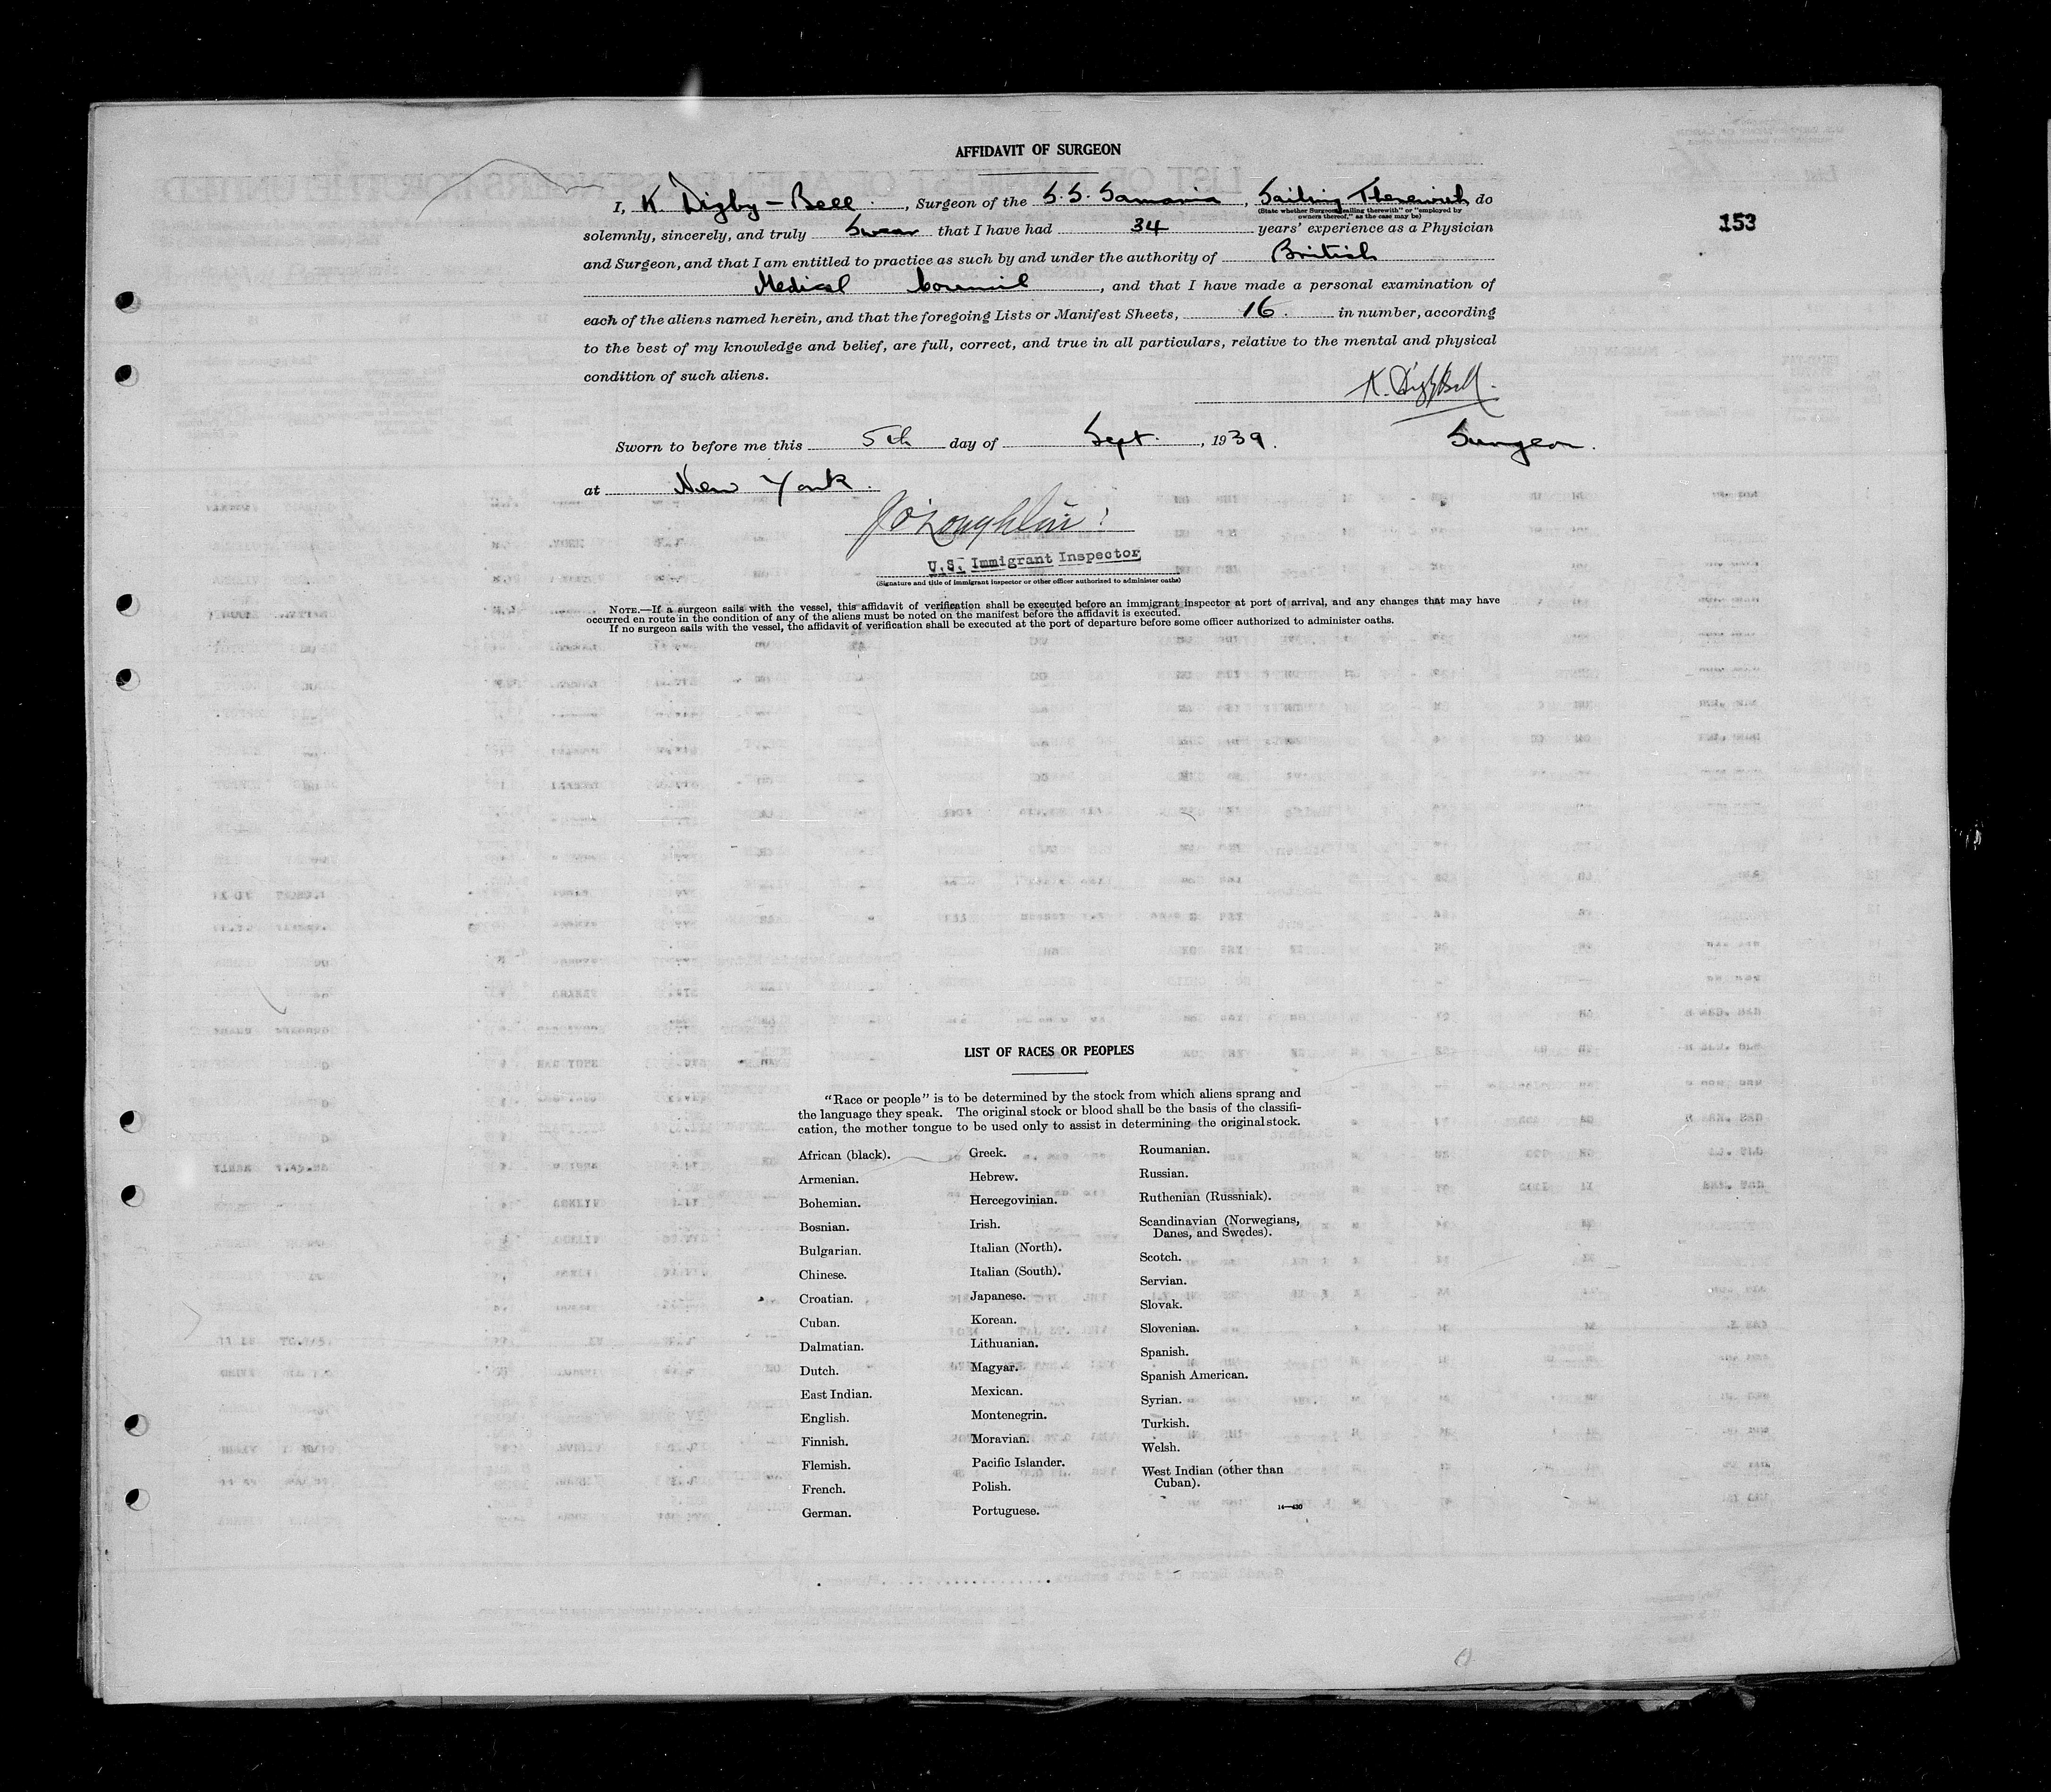 AFFIDAVIT OF SURGEON
I, K. Digby-Bell, Surgeon of the S.S. Samaria, Sailing Therewith, do
(State whether Surgeon "sailing therewith" or "employed by
owners thereof," as the case may be)
153
solemnly, sincerely, and truly Swear that I have had 34 years' experience as a Physician
and Surgeon, and that I am entitled to practice as such by and under the authority of British
Medical Council, and that I have made a personal examination of
each of the aliens named herein, and that the foregoing Lists or Manifest Sheets, 16. in number, according
to the best of my knowledge and belief, are full, correct, and true in all particulars, relative to the mental and physical
condition of such aliens.
K. Digby Bell.
Sworn to before me this 5th day of Sept., 1939.
Surgeon.
at New York.
J O'Loughlin
U.S. Immigrant Inspector
(Signature and title of immigrant inspector or other officer authorized to administer oaths)
NOTE.—If a surgeon sails with the vessel, this affidavit of verification shall be executed before an immigrant inspector at port of arrival, and any changes that may have
occurred en route in the condition of any of the aliens must be noted on the manifest before the affidavit is executed.
If no surgeon sails with the vessel, the affidavit of verification shall be executed at the port of departure before some officer authorized to administer oaths.
LIST OF RACES OR PEOPLES
"Race or people" is to be determined by the stock from which aliens sprang and
the language they speak. The original stock or blood shall be the basis of the classifi-
cation, the mother tongue to be used only to assist in determining the original stock.
African (black).
Armenian.
Bohemian.
Bosnian.
Bulgarian.
Chinese.
Croatian.
Cuban.
Dalmatian.
Dutch.
East Indian.
English.
Finnish.
Flemish.
French.
German.
Greek.
Hebrew.
Hercegovinian.
Irish.
Italian (North).
Italian (South).
Japanese.
Korean.
Lithuanian.
Magyar.
Mexican.
Montenegrin.
Moravian.
Pacific Islander.
Polish.
Portuguese.
Roumanian.
Russian.
Ruthenian (Russniak).
Scandinavian (Norwegians,
Danes, and Swedes).
Scotch.
Servian.
Slovak.
Slovenian.
Spanish.
Spanish American.
Syrian.
Turkish.
Welsh.
West Indian (other than
Cuban).
14—430